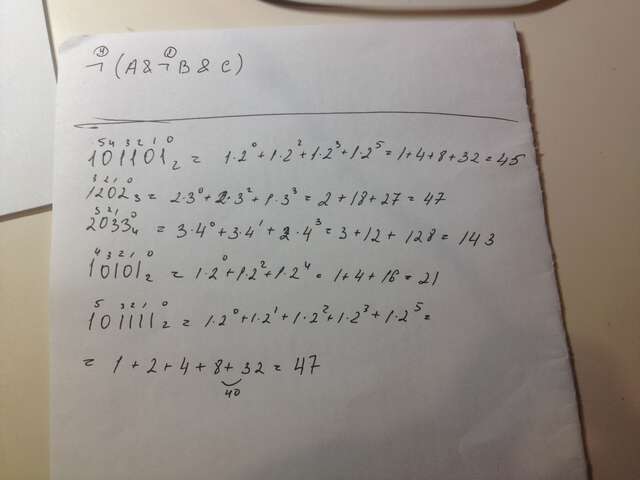 ④ ①
¬ (A & ¬ B & C)
5 4 3 2 1 0
101101₂ = 1·2⁰+1·2²+1·2³+1·2⁵=1+4+8+32=45
3 2 1 0
1202₃ = 2·3⁰+2·3²+1·3³=2+18+27=47
3 2 1 0
2033₄ = 3·4⁰+3·4¹+2·4³=3+12+128=143
4 3 2 1 0
10101₂ = 1·2⁰+1·2²+1·2⁴=1+4+16=21
5 3 2 1 0
101111₂ = 1·2⁰+1·2¹+1·2²+1·2³+1·2⁵=
= 1+2+4+8+32=47
40